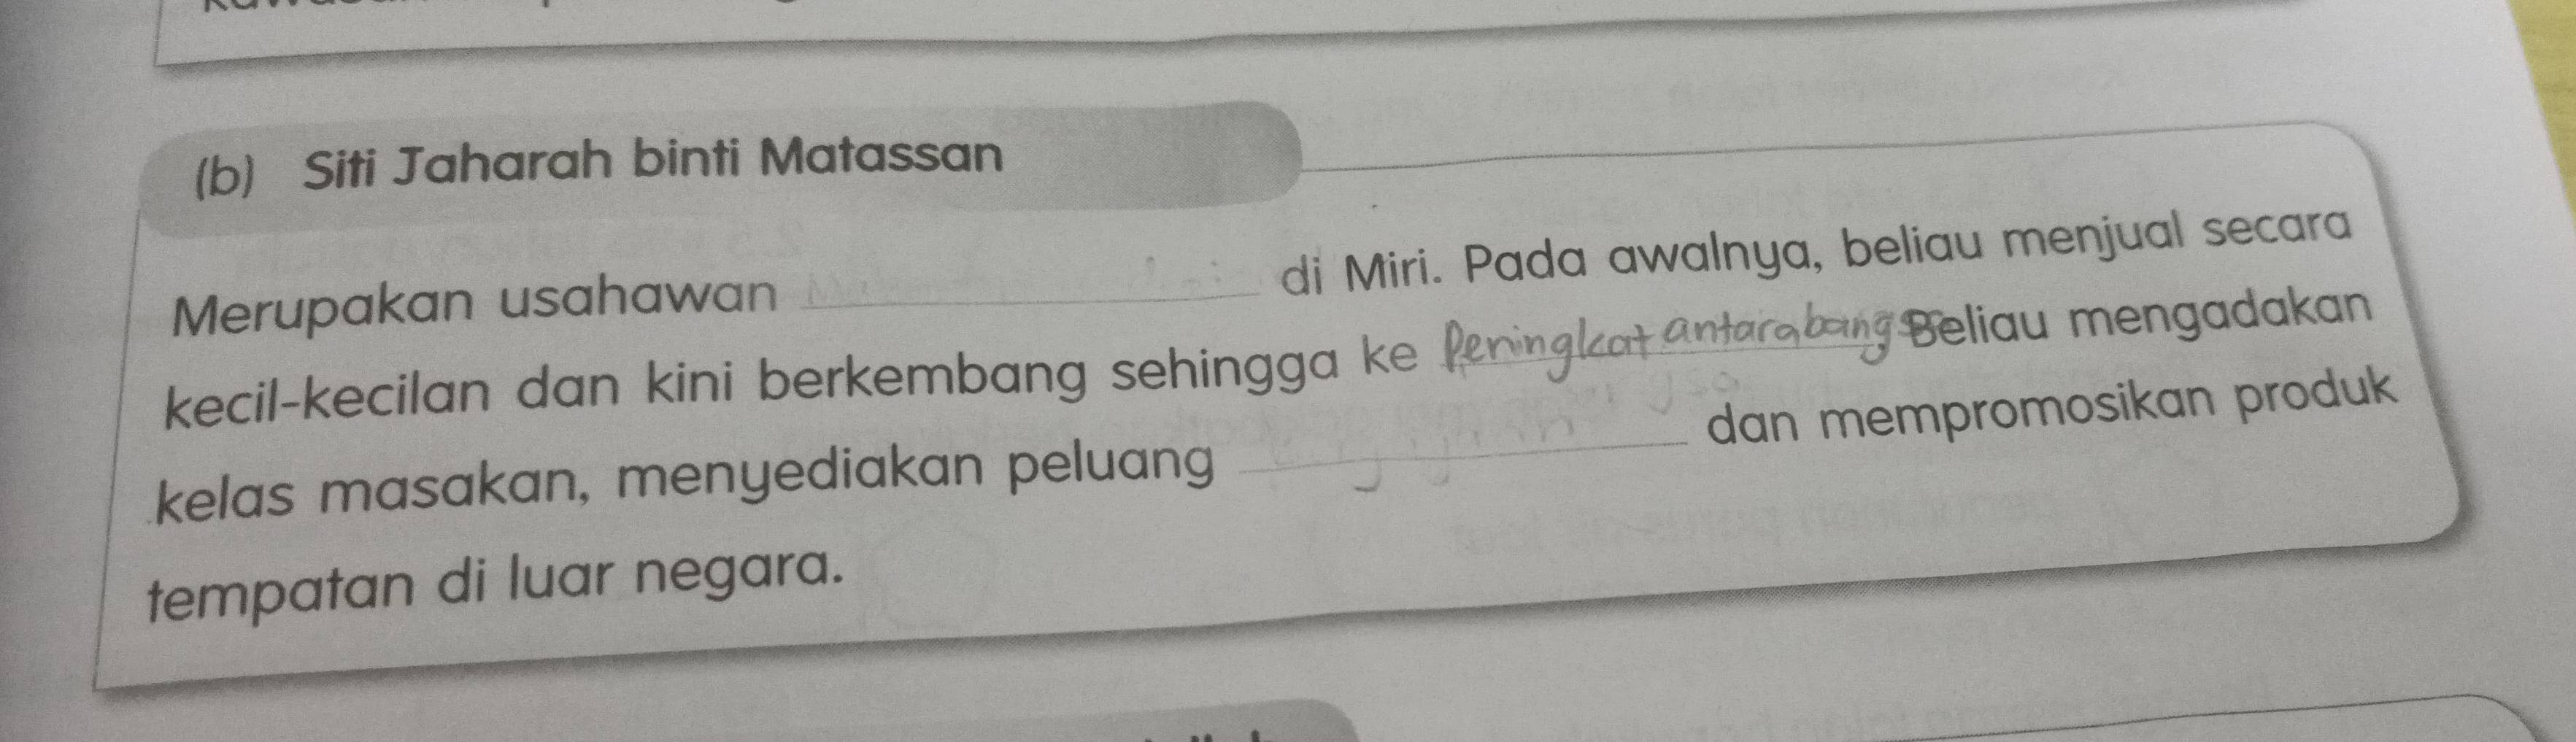 (b) Siti Jaharah binti Matassan
Merupakan usahawan di Miri. Pada awalnya, beliau menjual secara
kecil-kecilan dan kini berkembang sehingga ke Peringkat antarabangsa Beliau mengadakan
kelas masakan, menyediakan peluang dan mempromosikan produk
tempatan di luar negara.